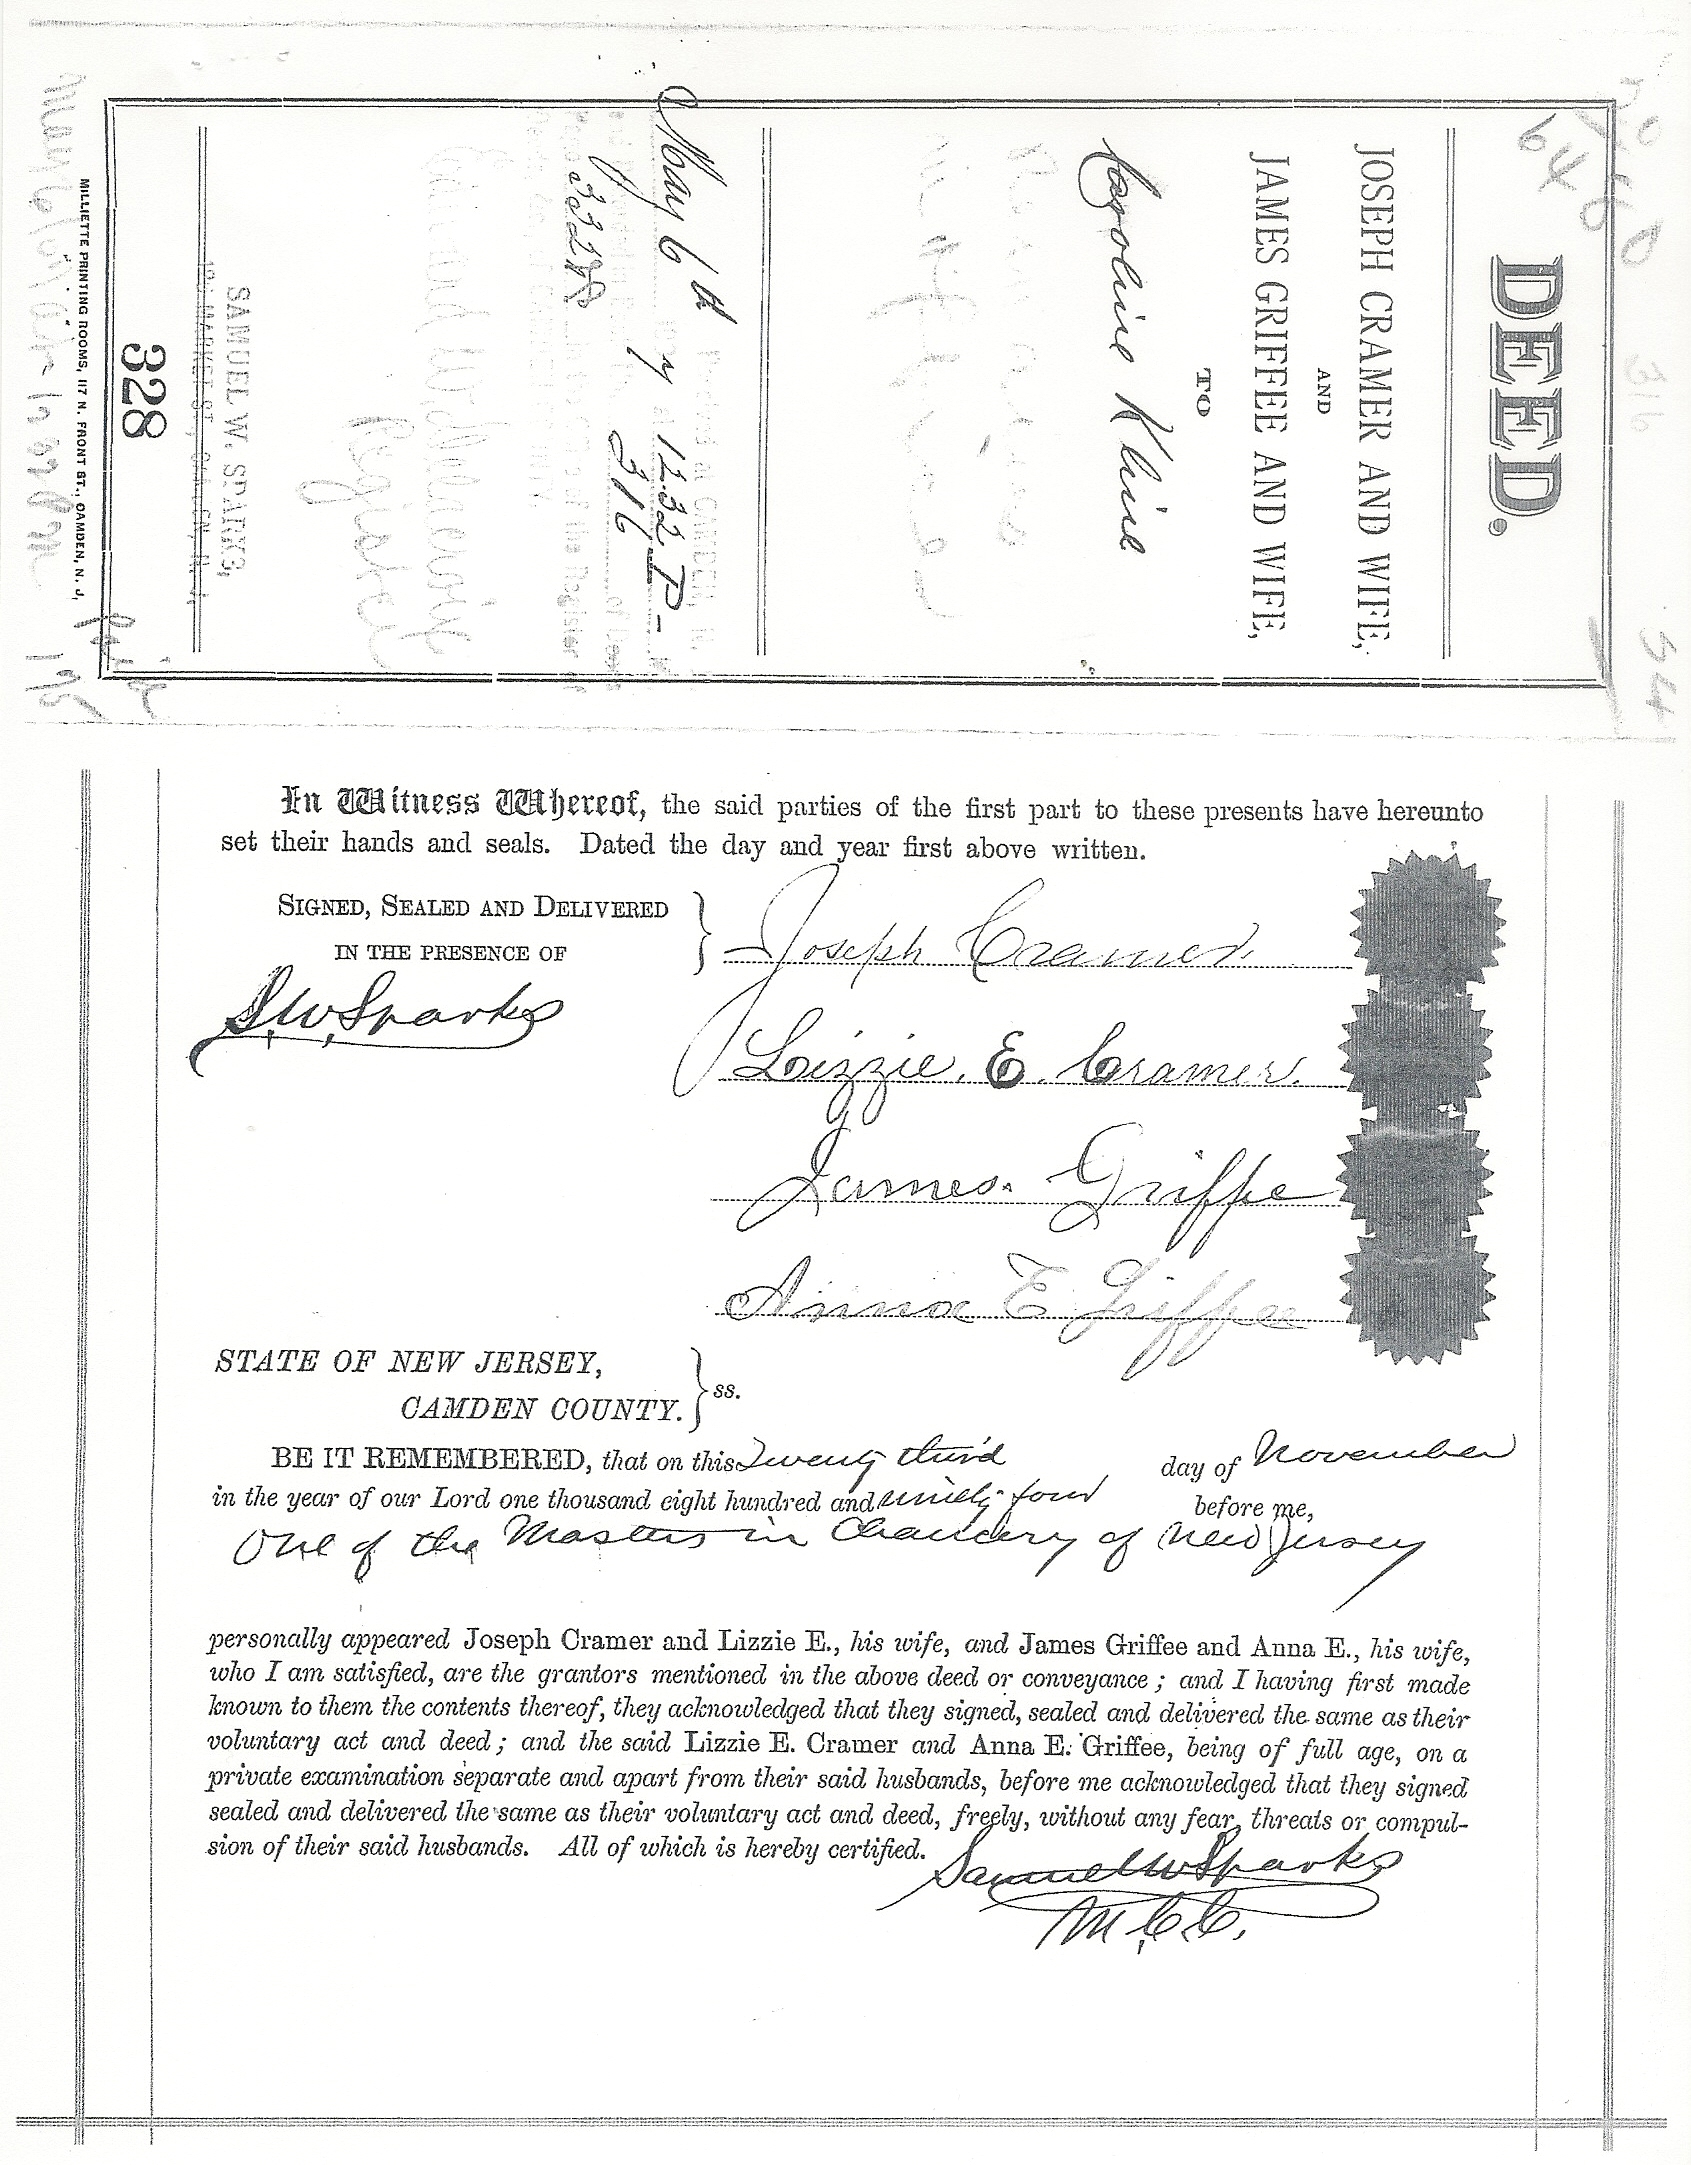 DEED.
JOSEPH CRAMER AND WIFE,
AND
JAMES GRIFFEE AND WIFE,
TO
Caroline Kline
May 6th
1232 P
316
Register
SAMUEL W. SPARKS,
328
MILLIETTE PRINTING ROOMS, 117 N. FRONT ST., CAMDEN, N. J,
In Witness Whereof, the said parties of the first part to these presents have hereunto
set their hands and seals. Dated the day and year first above written.
SIGNED, SEALED AND DELIVERED
IN THE PRESENCE OF
S. W. Sparks
Joseph Cramer.
Lizzie. E. Cramer.
James. Griffee
Anna E Griffee
STATE OF NEW JERSEY,
CAMDEN COUNTY. } ss.
BE IT REMEMBERED, that on this Twenty third day of November
in the year of our Lord one thousand eight hundred and ninety-four before me,
One of the Masters in Chancery of New Jersey
personally appeared Joseph Cramer and Lizzie E., his wife, and James Griffee and Anna E., his wife,
who I am satisfied, are the grantors mentioned in the above deed or conveyance; and I having first made
known to them the contents thereof, they acknowledged that they signed, sealed and delivered the same as their
voluntary act and deed; and the said Lizzie E. Cramer and Anna E. Griffee, being of full age, on a
private examination separate and apart from their said husbands, before me acknowledged that they signed
sealed and delivered the same as their voluntary act and deed, freely, without any fear, threats or compul-
sion of their said husbands. All of which is hereby certified.
Samuel W Sparks
M. C. C.